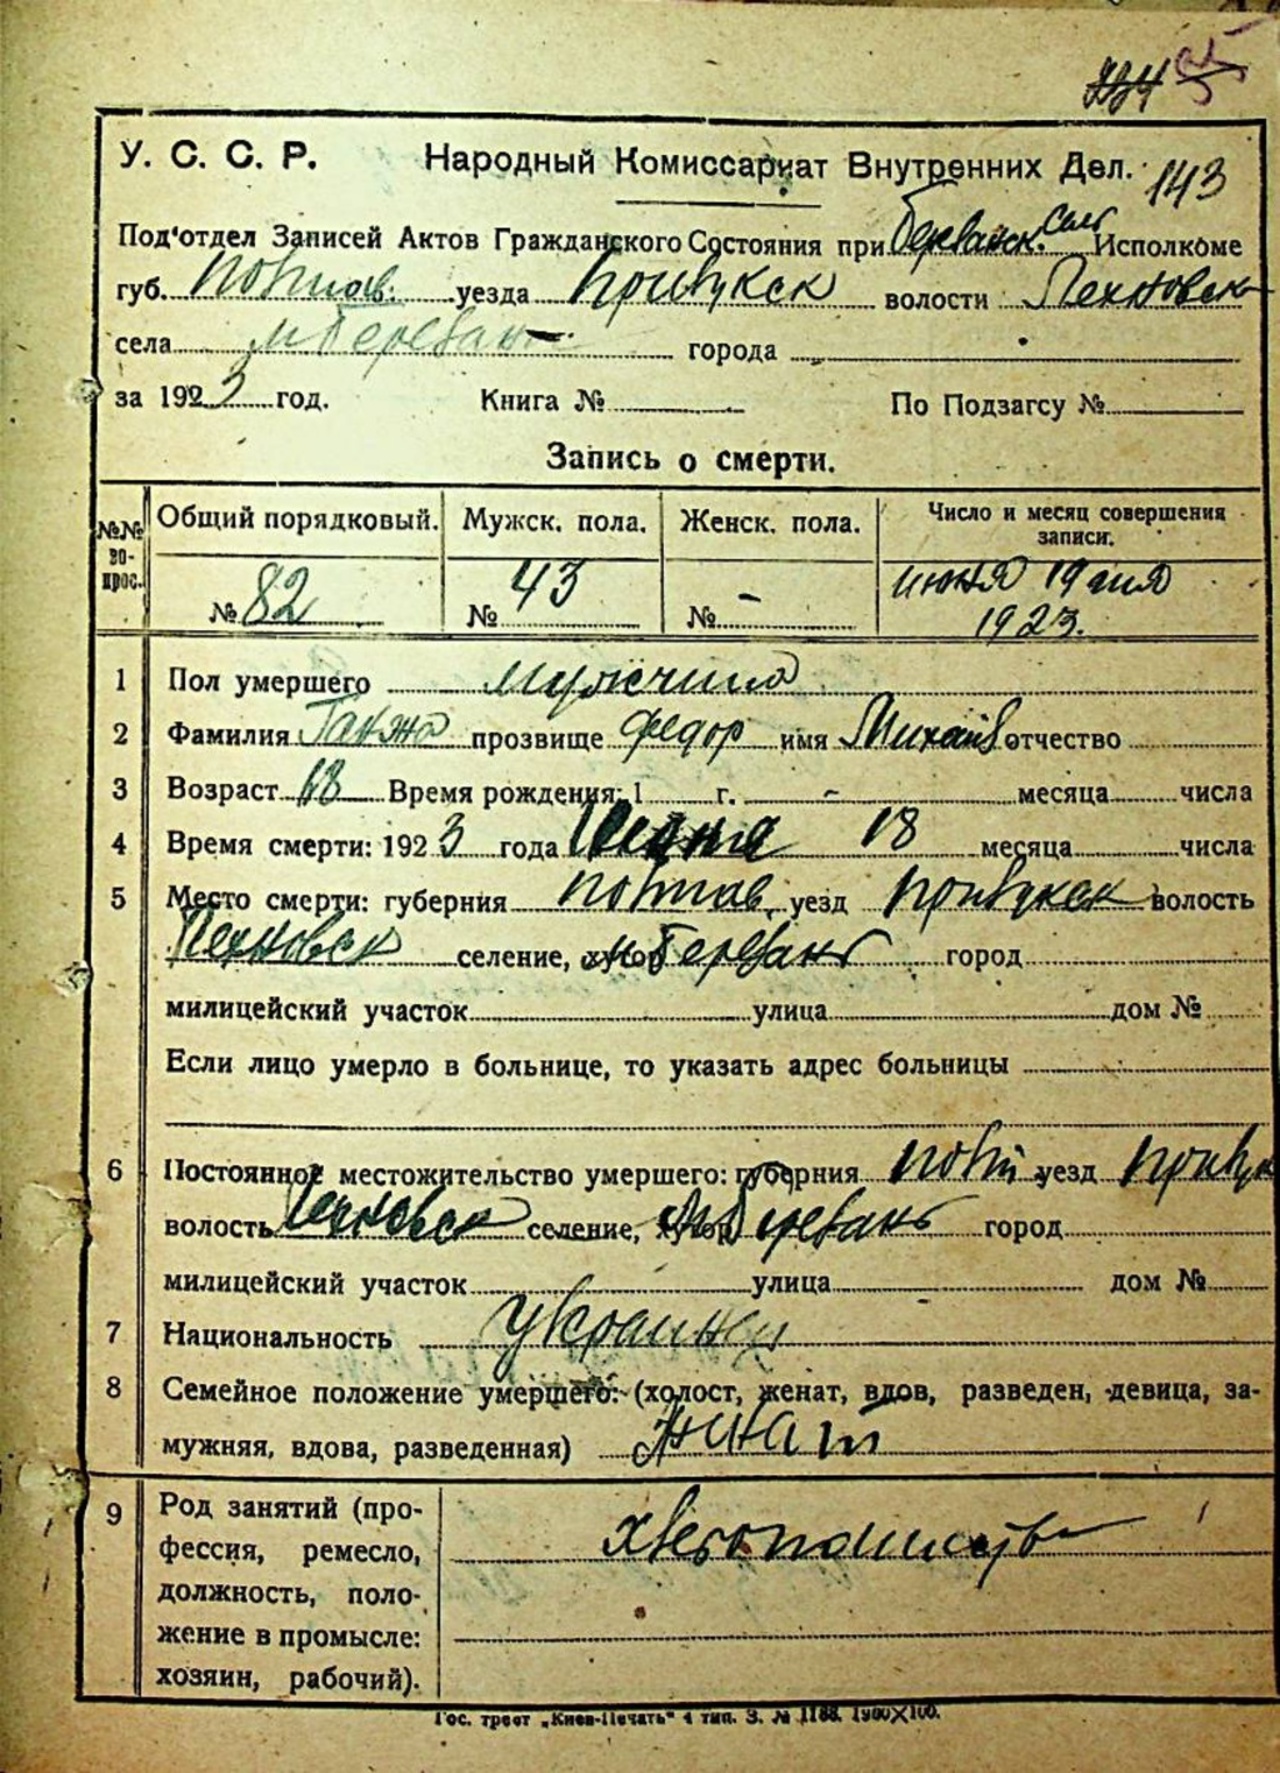 143
У. С. С. Р. Народный Комиссариат Внутренних Дел.
Под'отдел Записей Актов Гражданского Состояния при Березанск. Сель Исполкоме
губ. Полтав. уезда Прилукск волости Яехновск
села м Березань города
за 1923 год. Книга № По Подзагсу №
Запись о смерти.
№№ вопрос. Общий порядковый. Мужск. пола. Женск. пола. Число и месяц совершения записи.
№ 82 № 43 № - июня 19 дня 1923.
1 Пол умершего мужчина
2 Фамилия Ганжа прозвище Федор имя Михайл отчество
3 Возраст 68 Время рождения: 1 г. - месяца числа
4 Время смерти: 1923 года Июня 18 месяца числа
5 Место смерти: губерния Полтав. уезд Прилукск волость
селение, хутор м Березань город
милицейский участок улица дом №
Если лицо умерло в больнице, то указать адрес больницы
6 Постоянное местожительство умершего: губерния Полт уезд Прилук
волость селение, хутор м Березань город
милицейский участок улица дом №
7 Национальность
8 Семейное положение умершего: (холост, женат, вдов, разведен, девица, за-
мужняя, вдова, разведенная) жинат
9 Род занятий (про-
фессия, ремесло,
должность, поло-
жение в промысле:
хозяин, рабочий).
Гос. трест „Киев-Печать" 4 тип. З. № 1188. 1900×100.